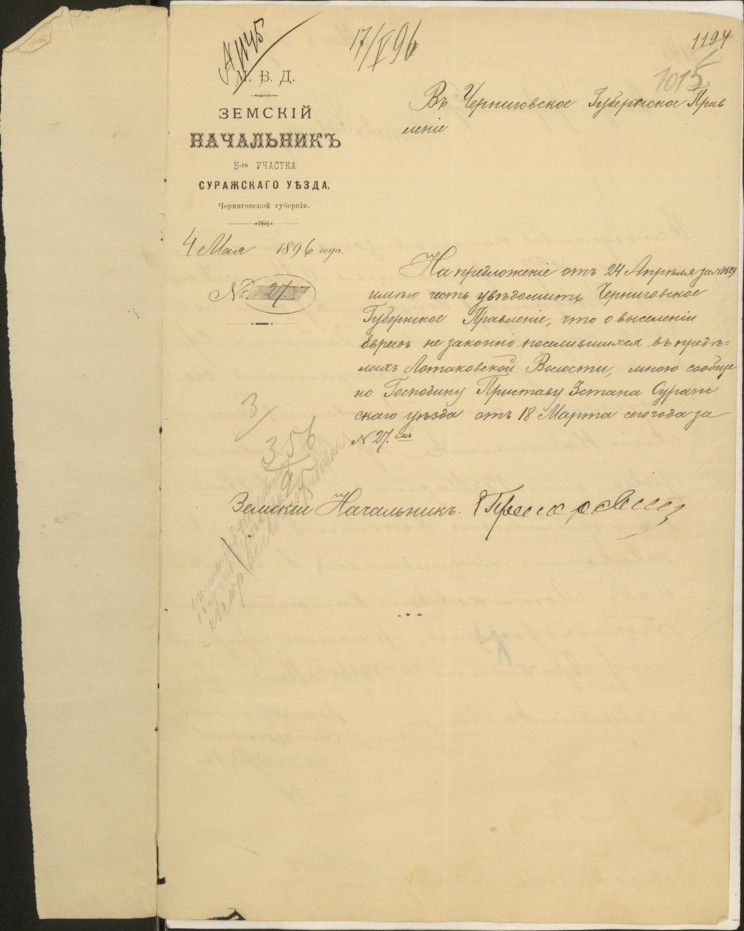 17/V 96
1194
1015
М. В. Д.
ЗЕМСКІЙ
НАЧАЛЬНИКЪ
5-го УЧАСТКА
СУРАЖСКАГО УѢЗДА,
Черниговской губерніи.
4 Мая 1896 года.
№ 27
Въ Черниговское Губернское Прав
леніе
На предложеніе отъ 24 Апрѣля за №
имѣю честь увѣдомить Черниговское
Губернское Правленіе, что о выселеніи
евреевъ не законно поселившихся въ предѣ-
лахъ Лотаковской Волости, мною сообще
но Господину Приставу 3 стана Сураж
скаго уѣзда отъ 18 Марта сего года за
№ 27.
3/
356
95
Земскій Начальникъ